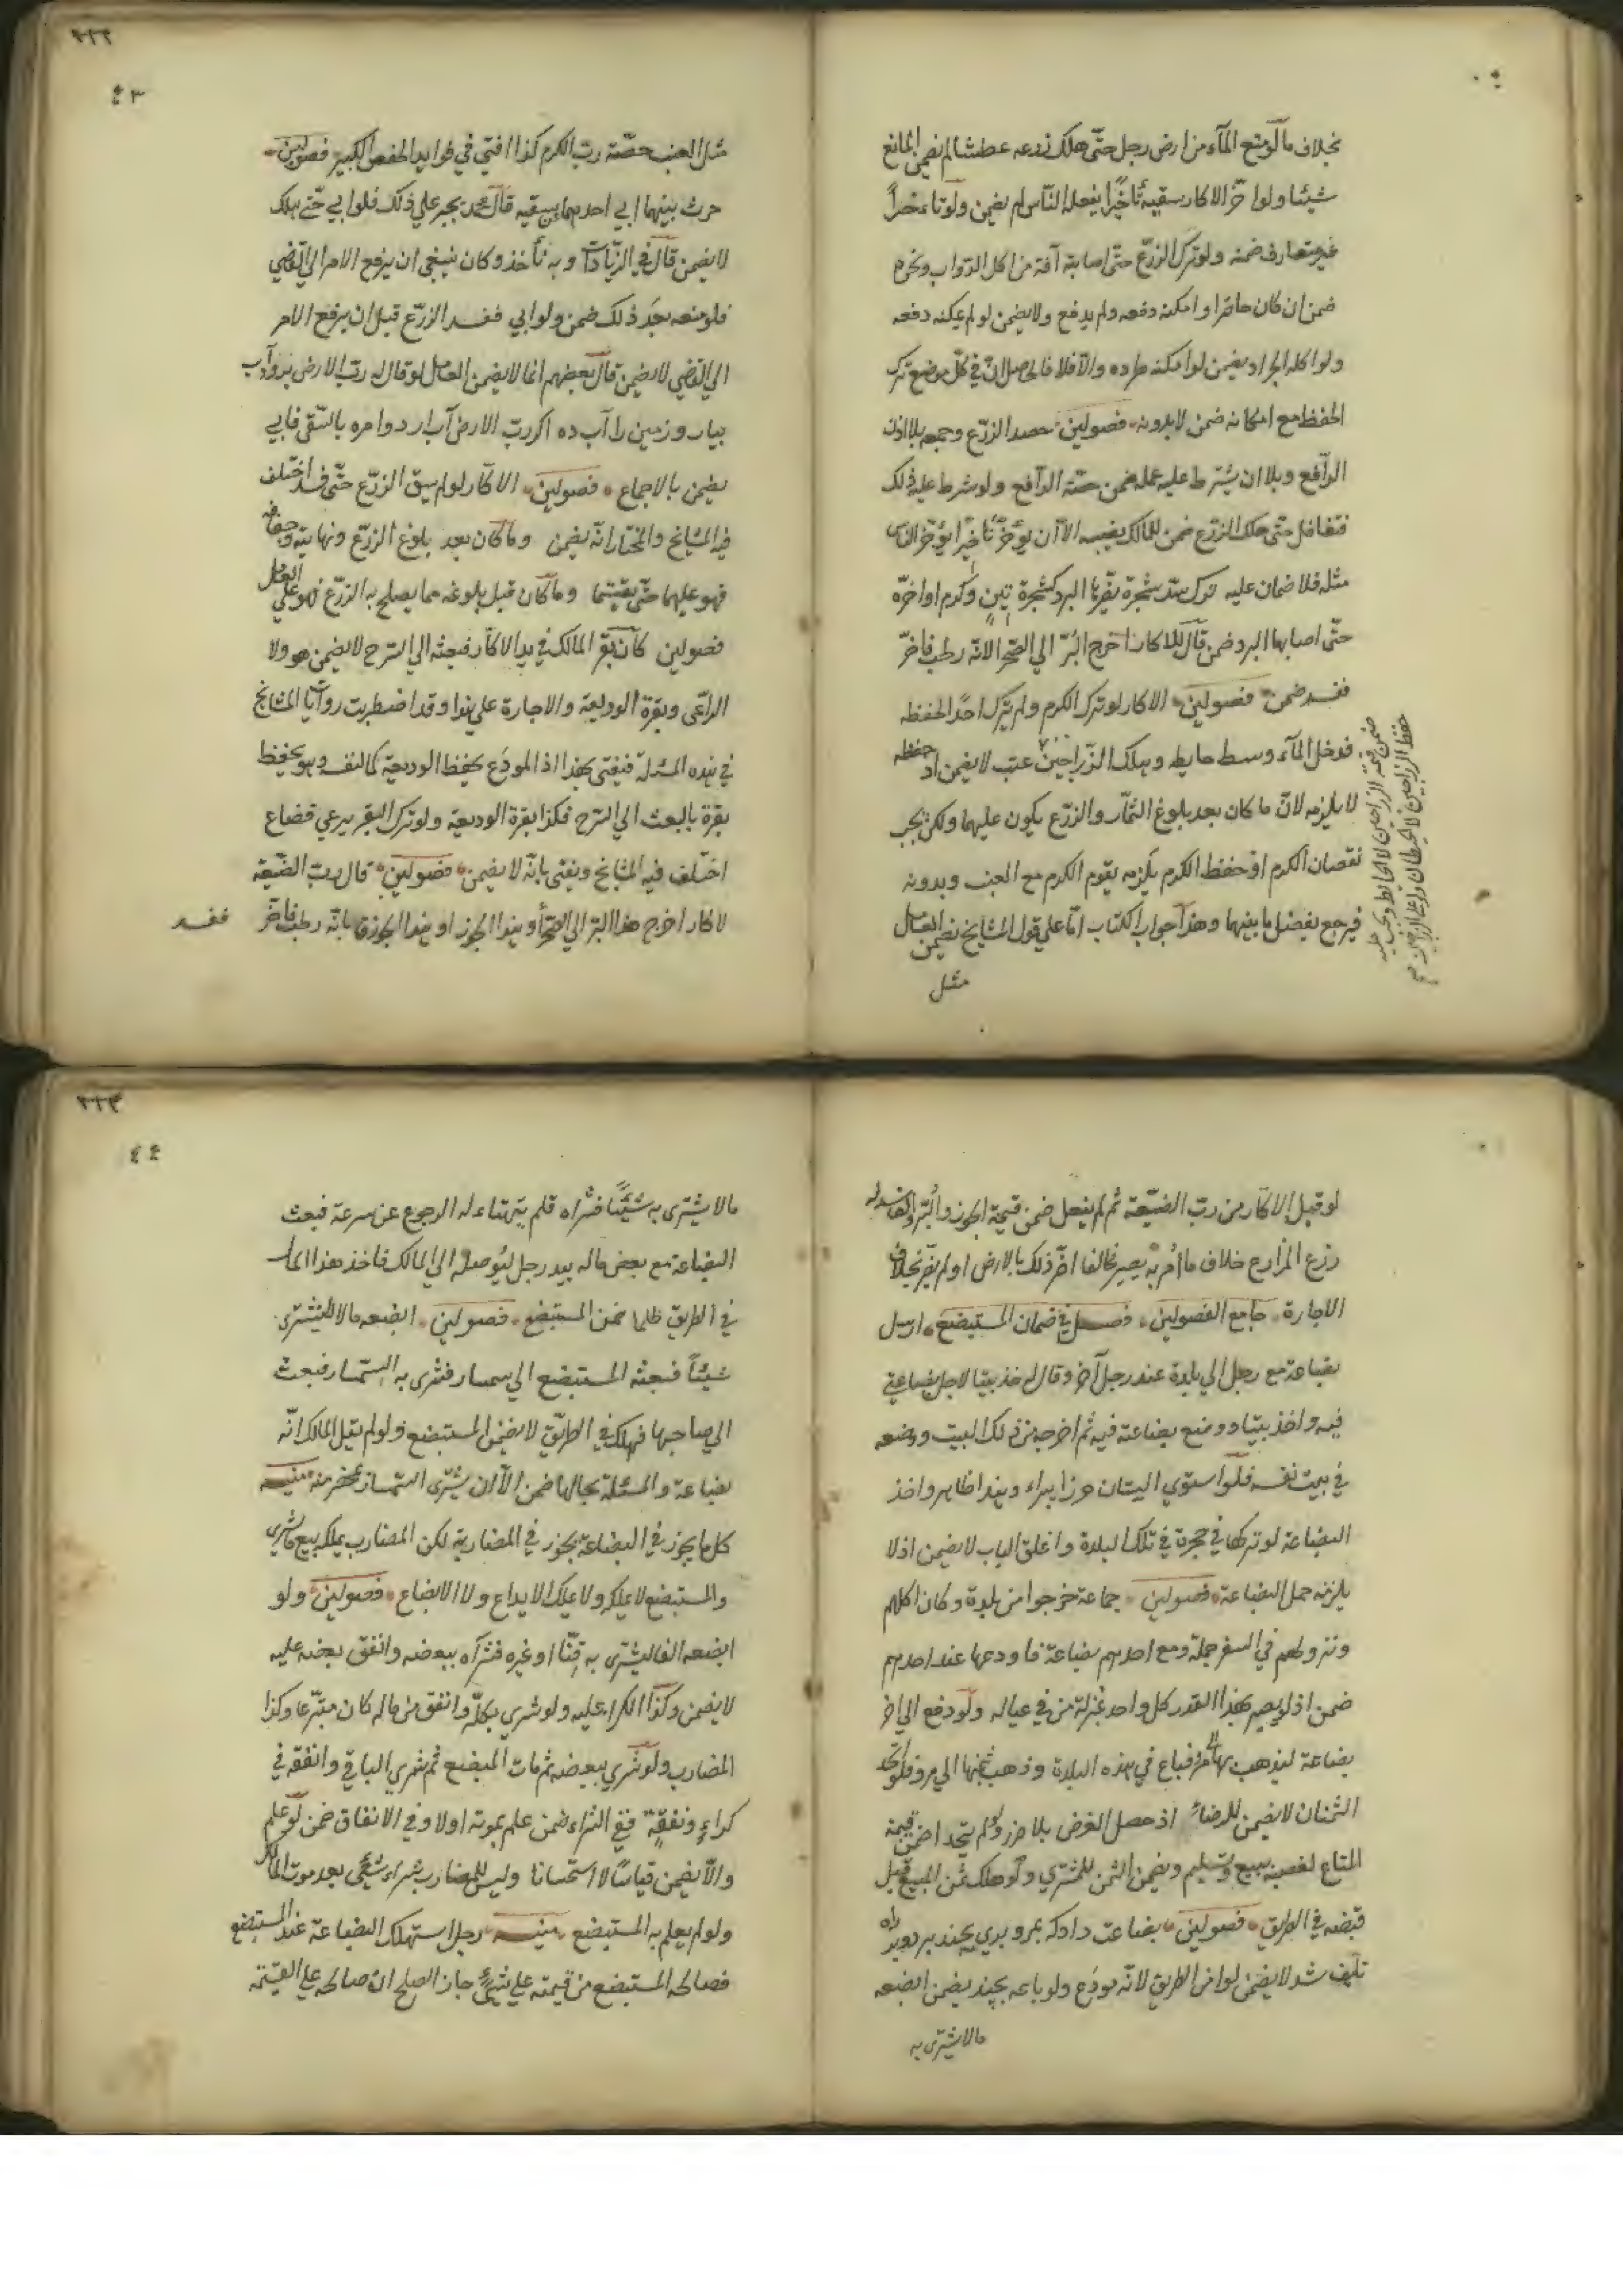 بخلاف ما لو منع الماء من ارض رجل حتى هلك زرعه عطشا لم يضمن المانع
شيئا ولو اخّر الاكار سقيه تأخيرا يفعله الناس لم يضمن ولو تأخيراً
غير متعارف ضمنه ولو ترك الزرع حتى اصابته آفة من اكل الدواب ونحوه
ضمن ان كان حاضرا وامكنه دفعه ولم يدفع ولا يضمن لو لم يمكنه دفعه
ولو اكله الجراد يضمن لو امكنه طرده والّا فلا فالحاصل انّ في كل موضع ترك
الحفظ مع امكانه ضمن لا بدونه فصولين حصد الزرع وجمعه بلا اذن
الدافع وبلا ان يشترط عليه عمله ضمن حصّة الدافع ولو شرط عليه ذلك
فتغافل حتى هلك الزرع ضمن للمالك نصيبه الا ان يؤخر تأخيرا يؤخر الناس
مثله فلا ضمان عليه ترك شد شجرة يضرّها البرد كشجرة تين وكرم او اخّره
حتى اصابها البرد ضمن قال للاكار اخرج البرّ الى الصحراء لانه رطب فاخّر
ففسد ضمن فصولين الاكار لو ترك الكرم ولم يترك احدا لحفظه
فدخل الماء وسط حايطه وهلك الزراجين عنب لا يضمن اذ حفظه
لا يلزمه لانّ ما كان بعد بلوغ الثمار والزرع يكون عليهما ولكن يجب
نقصان الكرم اذ حفظ الكرم يلزمه يقوم الكرم مع العنب وبدونه
فيرجع بفضل ما بينهما وهذا جواب الكتاب امّا على قول المشايخ يضمن العامل
مثل
ضمن قيمة الزراجين لا الحايط
حفظ الزراجين لا الحيطان
٢٢٢
٤٣
مثل العنب حصّة ربّ الكرم كذا افتى في فوايد ابي حفص الكبير فصولين
حرث بينهما ابي احدهما ان يسقيه قال محمد يجبر على ذلك فلو ابي حتى هلك
لا يضمن قال في الزيادات وبه نأخذ وكان ينبغي ان يرفع الامر الى القاضي
فلو منعه بعد ذلك ضمن ولو ابي ففسد الزرع قبل ان يرفع الامر
الى القاضي لا يضمن قال بعضهم انما لا يضمن العامل لو قال له رب الارض برو آب
بيار وزمين را آب ده اكر ربّ الارض آب آرد وامره بالسقي فابي
يضمن بالاجماع فصولين الاكار لو لم يسق الزرع حتى فسد اختلف
فيه المشايخ والمختار انه يضمن وما كان بعد بلوغ الزرع ونهايته وجفافه
فهو عليهما حتى يقتسما وما كان قبل بلوغه مما يصلح به الزرع فهو على العامل
فصولين كان بقر المالك في يد الاكار فبعثه الى السرح لا يضمن هو ولا
الراعي وبقرة الوديعة والاجارة على هذا وقد اضطربت روايات المشايخ
في هذه المسئلة فيفتى بهذا اذ المودَع يحفظ الوديعة كمال نفسه وهو يحفظ
بقرة بالبعث الى السرح فكذا بقرة الوديعة ولو ترك البقر يرعى فضاع
اختلف فيه المشايخ ويفتى بانّه لا يضمن فصولين قال رب الضيعة
لاكار اخرج هذا البرّ الى الصحراء وهذا الجوز او هذا الجوزق بانّه رطب فاخّر
ففسد
لو قبل الاكار من رب الضيعة ثم لم يفعل ضمن قيمة الجوز والبرّ والفاسد له
زرع المزارع خلاف ما أمر به يصير مخالفا اضرّ ذلك بالارض او لم يضرّ بخلاف
الاجارة جامع الفصولين فصل في ضمان المستبضع ارسل
بضاعة مع رجل الى بلدة عند رجل آخر وقال له خذ بيتا لاجل بضاعتي
فيه واخذ بيتا ووضع بضاعته فيه ثم اخرجه من ذلك البيت ووضعه
في بيت نفسه فلو استوى البيتان حرزا يبراء وهذا ظاهر واخذ
البضاعة لو تركها في حجرة في تلك البلدة واغلق الباب لا يضمن اذ لا
يلزمه حمل البضاعة فصولين جماعة خرجوا من بلدة وكان اكلهم
ونزولهم في السفر جملة ومع احدهم بضاعة فاودعها عند احدهم
ضمن اذ لم يصر بهذا القدر كل واحد بمنزلة من في عياله ولو دفع الى آخر
بضاعة ليذهب بها الى مرو فباع في هذه البلدة وذهب بثمنها الى مرو فلو اتحد
الثمنان لا يضمن للرضاء اذ حصل الغرض بلا ضرر ولو لم يتحدا ضمن قيمة
المتاع لغصبه ببيع وتسليم ويضمن الثمن للمشتري ولو هلك ثمن المبيع قبل
قبضه في الطريق فصولين بضاعت داد كه بمرو بري بچند برد ودر راه
تلف شد لا يضمن لو امن الطريق لانّه مودَع ولو باعه بچند يضمن ابضعه
مالا يشتري به
٢٢٣
٤٤
مالا يشترى به شيئاً فشراه فلم يتهيّاء له الرجوع عن سرعة فبعث
البضاعة مع بعض ماله بيد رجل ليوصله الى المالك فاخذ هذا المال
في الطريق ظلما ضمن المستبضع فصولين ابضعه مالا ليشترى
شيئاً فبعثه المستبضع الى سمسار فشرى به السمسار فبعث
الى صاحبها فهلك في الطريق لا يضمن المستبضع ولو لم يقل المالك انّه
بضاعة والمسئلة بحالها ضمن الّا ان يشترى السمسار بمحضر منه منيه
كل ما يجوز في البضاعة يجوز في المضاربة لكن المضارب يملك بيع ما شرى
والمستبضع لا يملكه ولا يملك الايداع ولا الابضاع فصولين ولو
ابضعه الفا ليشترى به قنّا او غيره فشراه ببعضه وانفق بعضه عليه
لا يضمن وكذا الكراء عليه ولو شرى بكلّه وانفق من ماله كان متبرّعا وكذا
المضارب ولو شرى ببعضه ثم مات المبضع ثم شرى الباقي وانفقه في
كراءٍ ونفقةٍ ففي الشراء ضمن علم بموته اولا وفي الانفاق ضمن لو علم
والّا يضمن قياسًا لا استحسانا وليس للمضارب شراء شيء بعد موت المالك
ولو لم يعلم به المستبضع منيه رجل استهلك البضاعة عند المستبضع
فصالحه المستبضع من قيمته على شيءٍ جاز الصلح ان صالحه على القيمة